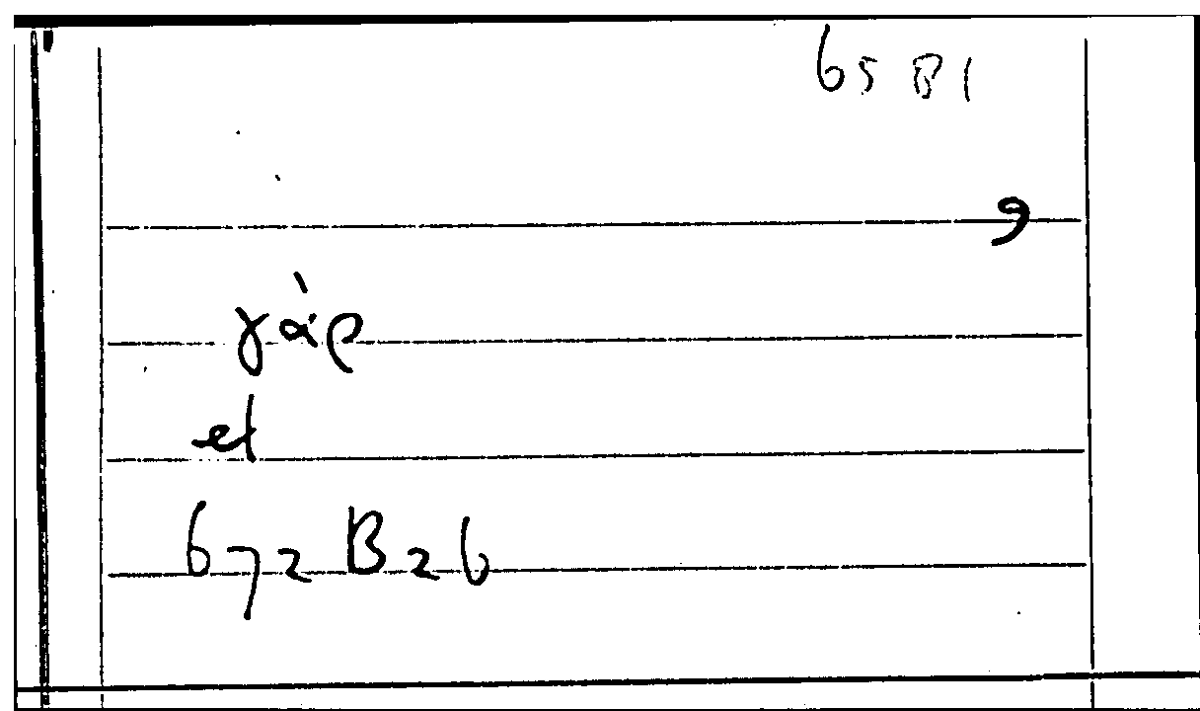 65 B 1
9
γὰρ
et
672 B 26